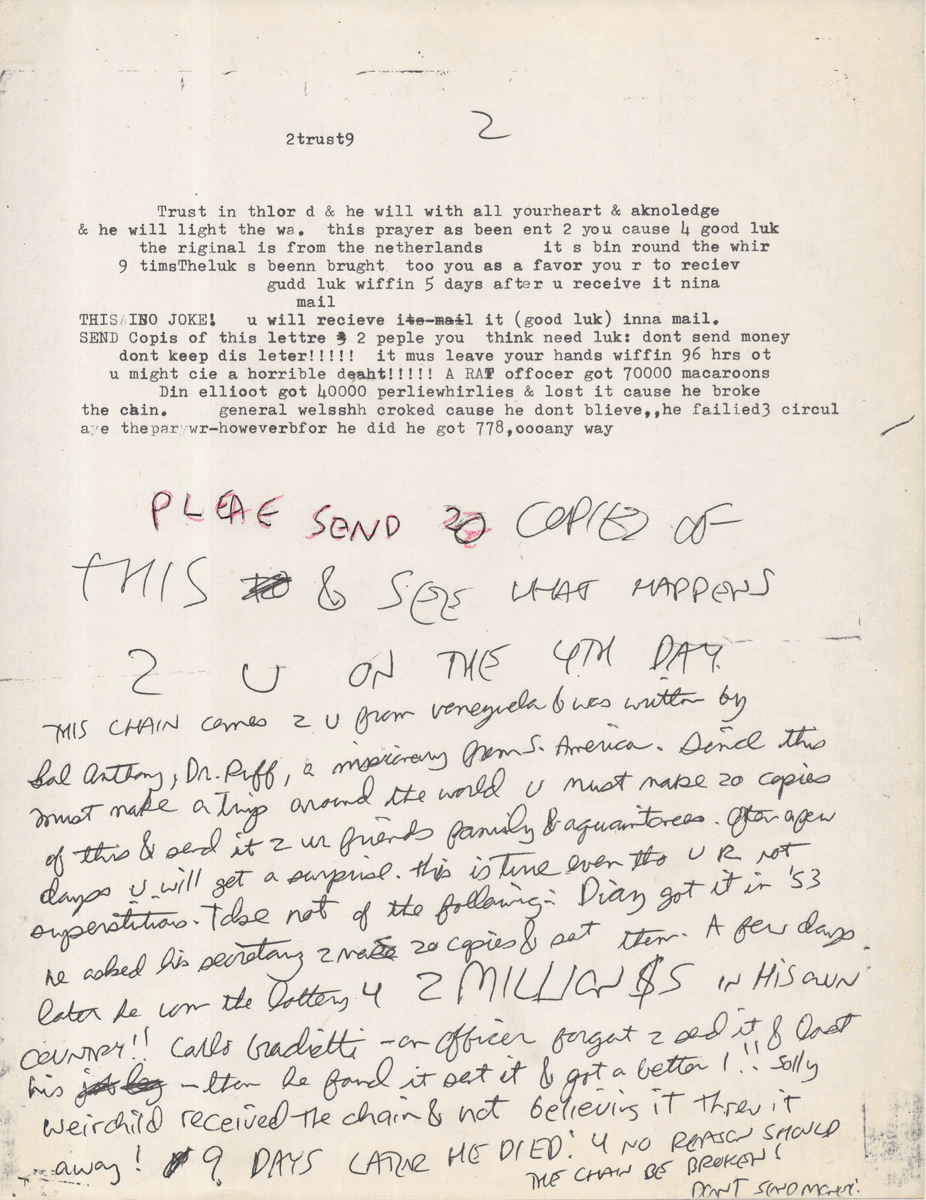 2
2trust9
Trust in thlor d & he will with all yourheart & aknoledge
& he will light the wa.  this prayer as been ent 2 you cause 4 good luk
the riginal is from the netherlands      it s bin round the whir
9 timsTheluk s beenn brught  too you as a favor you r to reciev
gudd luk wiffin 5 days after u receive it nina
mail
THIS INO JOKE!   u will recieve ite mail it (good luk) inna mail.
SEND Copis of this lettre 2 peple you  think need luk: dont send money
dont keep dis leter!!!!!  it mus leave your hands wiffin 96 hrs ot
u might cie a horrible deaht!!!!! A RAT offocer got 70000 macaroons
Din ellioot got 40000 perliewhirlies & lost it cause he broke
the chin.      general welsshh croked cause he dont blieve,,he failied3 circul
aye theparywr-howeverbfor he did he got 778,oooany way
PLEAE SEND 20 COPIES OF
THIS & SEE WHAT HAPPENS
2 U ON THE 4TH DAY
THIS CHAIN comes 2 U from venezuela & was written by
Sal Anthony, Dr. Puff, a missionary from S. America. Send this
must make a trip around the world U must make 20 copies
of this & send it 2 ur friends family & aquaintences. After a few
days U will get a surprise. this is true even tho U R not
superstitious. Take not of the following: Diaz got it in '53
he asked his secretary 2 make 20 copies & set them. A few days
later he won the lottery 4 2 MILLION $S IN HIS OWN
COUNTRY!! Carlo Gradietti - an officer forgot 2 sed it & lost
his job - then he fond it set it & got a better 1!! Solly
weirchild received the chain & not believing it threw it
away! 9 DAYS LATER HE DIED! 4 NO REASON SHOULD
THE CHAIN BE BROKEN!
DON'T SEND MONEY!